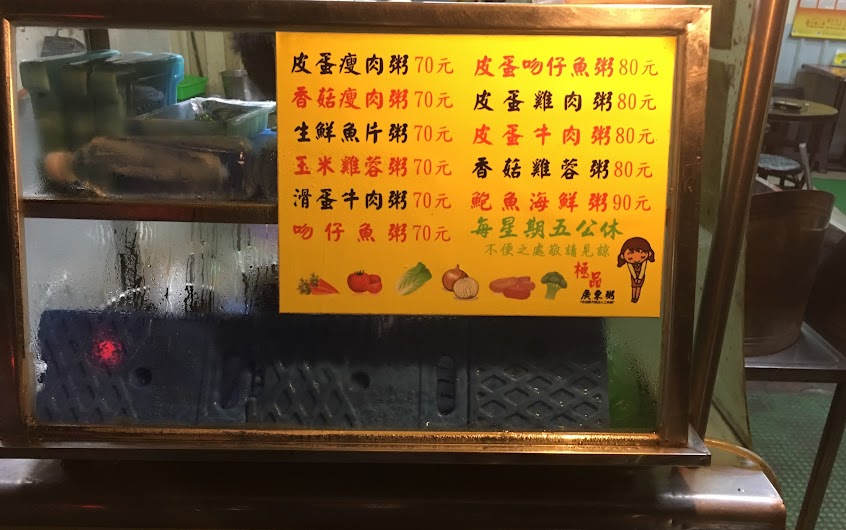 皮蛋瘦肉粥70元
香菇瘦肉粥70元
生鮮魚片粥70元
玉米雞蓉粥70元
滑蛋牛肉粥70元
吻仔魚粥70元
皮蛋吻仔魚粥80元
皮蛋雞肉粥80元
皮蛋牛肉粥80元
香菇雞蓉粥80元
鮑魚海鮮粥90元
每星期五公休
不便之處敬請見諒
極品
廣東粥